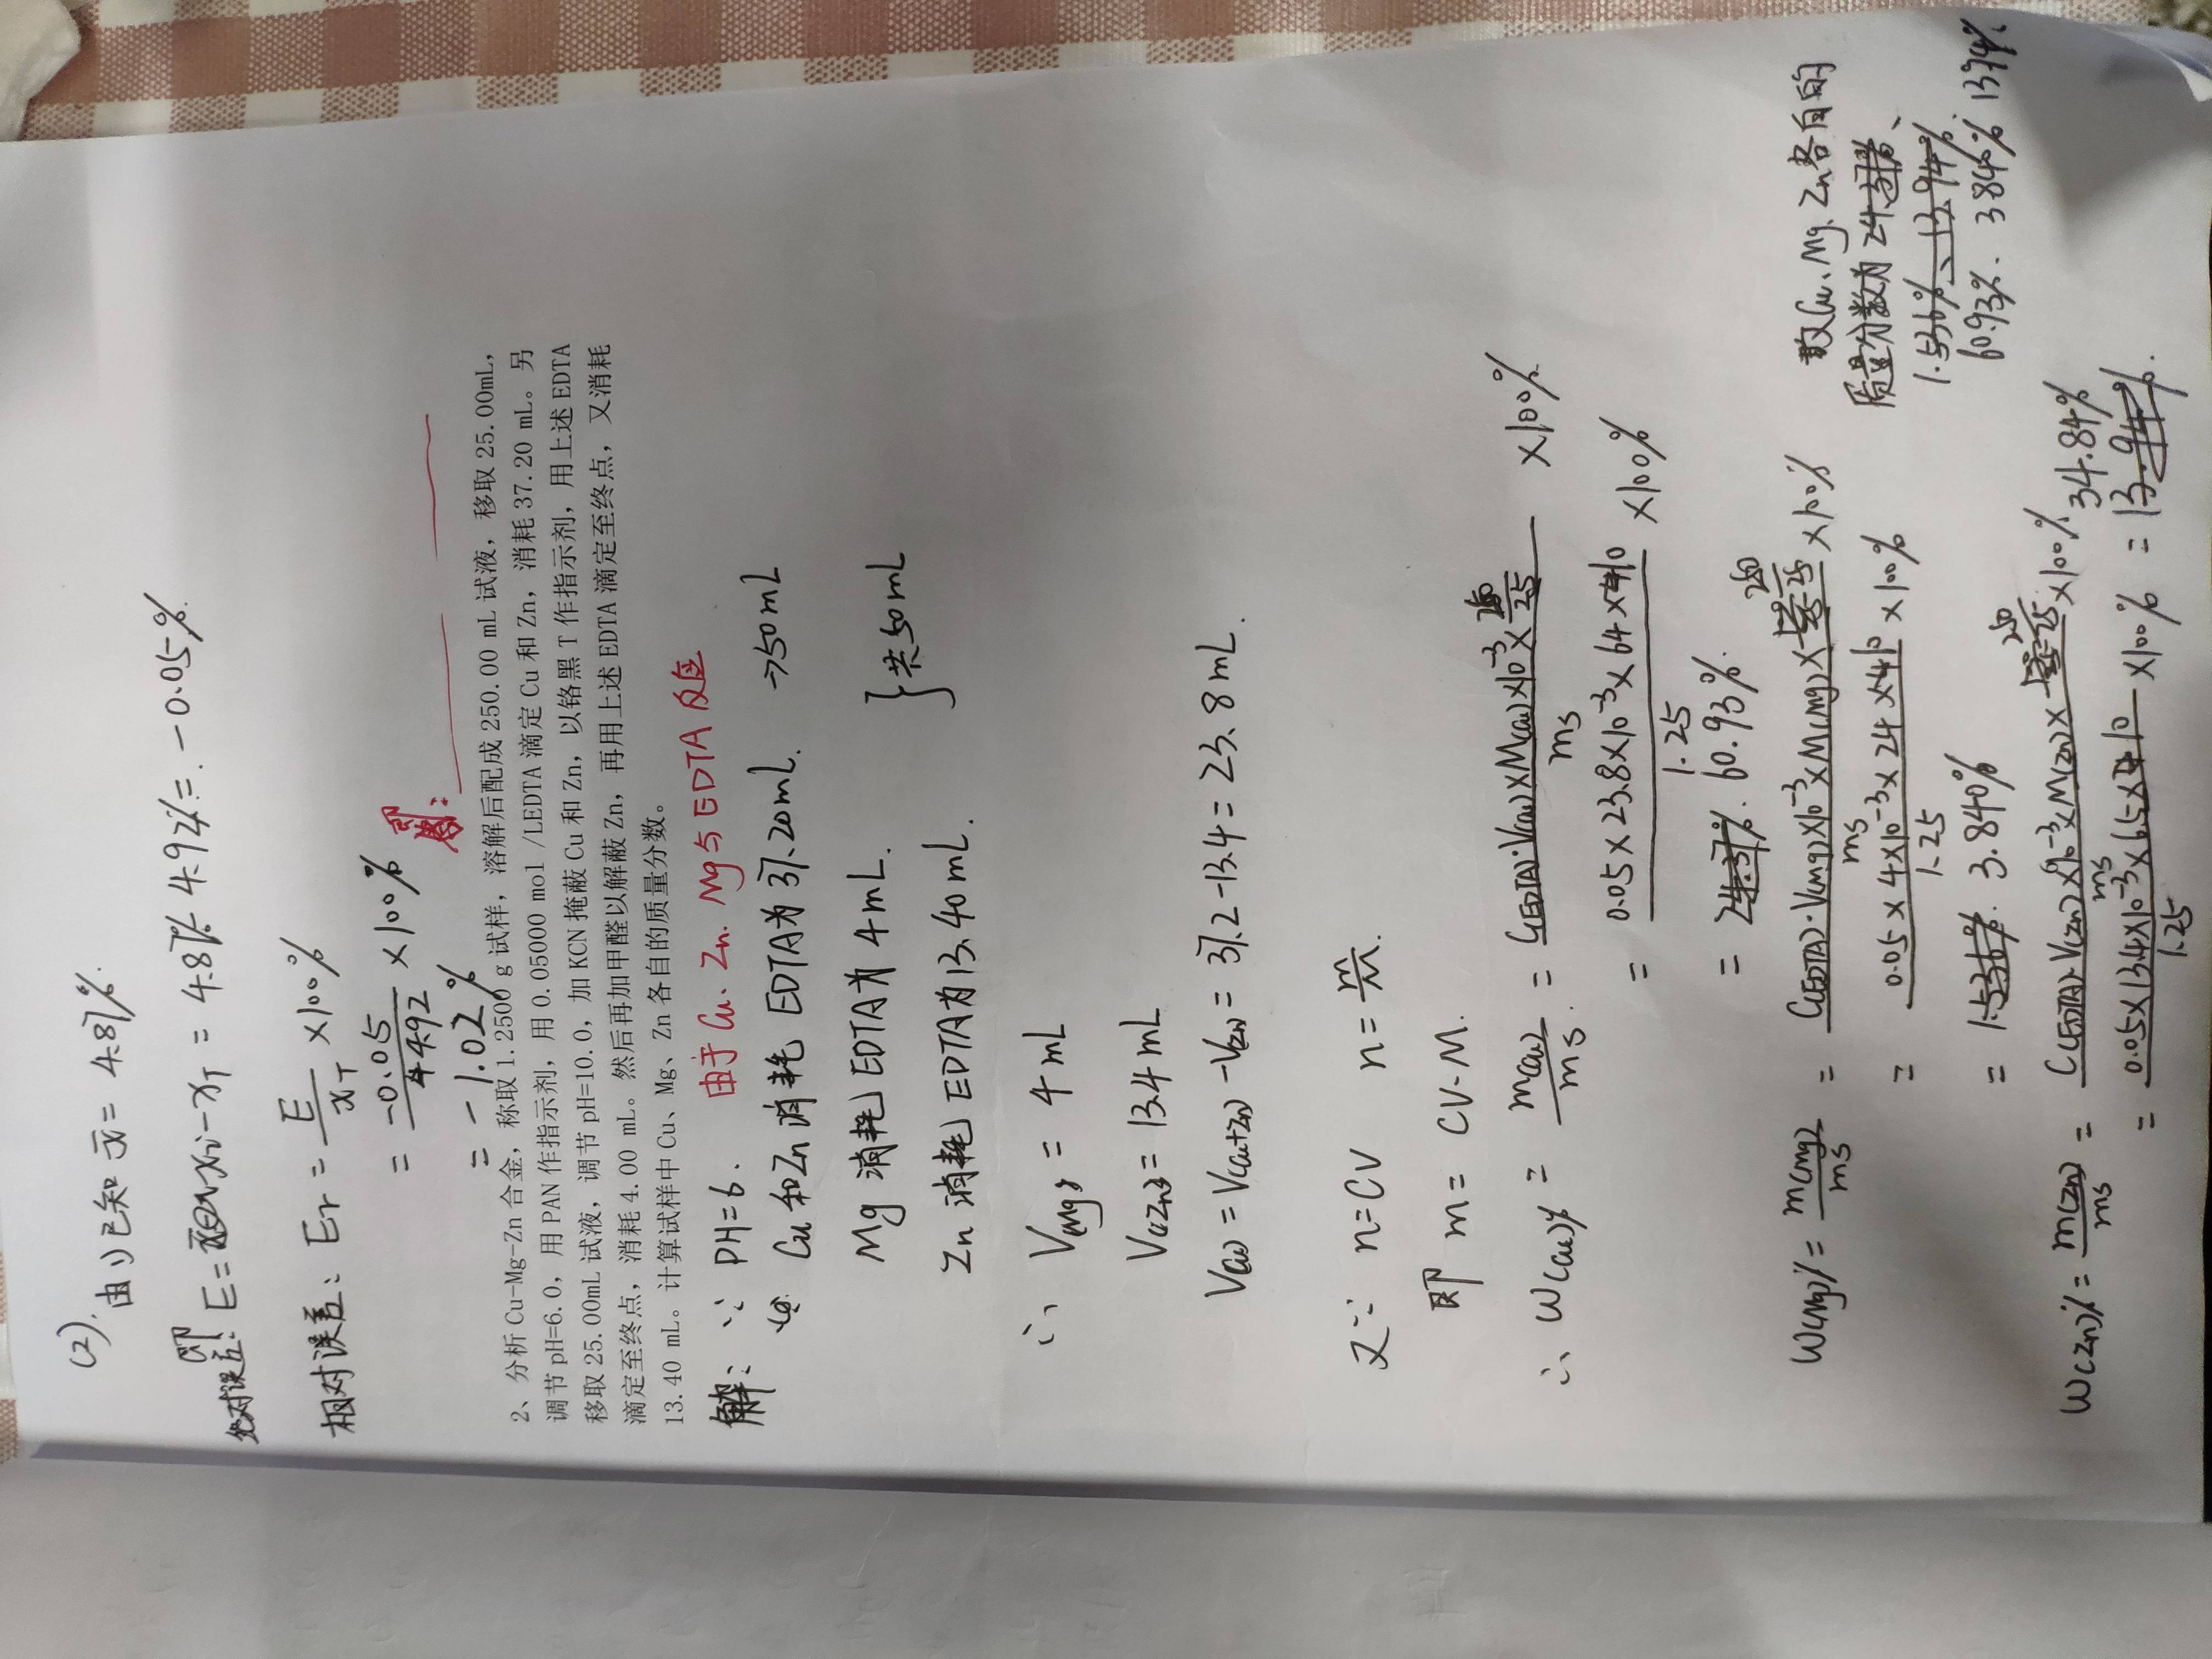 (2). 由(1)已知 x̄ = 4.87%.
绝对误差: E = xi - xT = 4.87% - 4.92% = -0.05%.
相对误差: Er = E/xT ×100%
= -0.05/4.92 ×100%
= -1.02%
2、分析 Cu-Mg-Zn 合金，称取 1.2500 g 试样，溶解后配成 250.00 mL 试液，移取 25.00mL，
调节 pH=6.0，用 PAN 作指示剂，用 0.05000 mol /LEDTA 滴定 Cu 和 Zn，消耗 37.20 mL。另
移取 25.00mL 试液，调节 pH=10.0，加 KCN 掩蔽 Cu 和 Zn，以铬黑 T 作指示剂，用上述 EDTA
滴定至终点，消耗 4.00 mL。然后再加甲醛以解蔽 Zn，再用上述 EDTA 滴定至终点，又消耗
13.40 mL。计算试样中 Cu、Mg、Zn 各自的质量分数。
解: ∵ PH=6. 由于 Cu、Zn. Mg与EDTA反应
Cu 和 Zn 消耗 EDTA为 37.20mL. →50mL
Mg 消耗 EDTA为 4mL.
Zn 消耗 EDTA为 13.40mL. } 共50mL
∴ V(Mg) = 4mL
V(Zn) = 13.4mL
V(Cu) = V(Cu+Zn) - V(Zn) = 37.2-13.4 = 23.8mL.
又∵ n=CV n=m/M.
即 m = CV·M.
∴ W(Cu)% = m(Cu)/ms = C(EDTA)·V(Cu)×M(Cu)×10⁻³×250/25 / ms ×100%
= 0.05×23.8×10⁻³×64×10 / 1.25 ×100%
= 24.37%. 60.93%.
W(Mg)% = m(Mg)/ms = C(EDTA)·V(Mg)×10⁻³×M(Mg)×250/25 / ms ×100%
= 0.05×4×10⁻³×24×10 / 1.25 ×100%
= 1.536%. 3.840%
W(Zn)% = m(Zn)/ms = C(EDTA)·V(Zn)×10⁻³×M(Zn)×250/25 / ms ×100%
= 0.05×13.4×10⁻³×65×10 / 1.25 ×100% = 13.94%. 34.84%
故Cu、Mg、Zn各自的
质量分数为 24.37%、
1.536%、13.94%.
60.93%. 3.840%